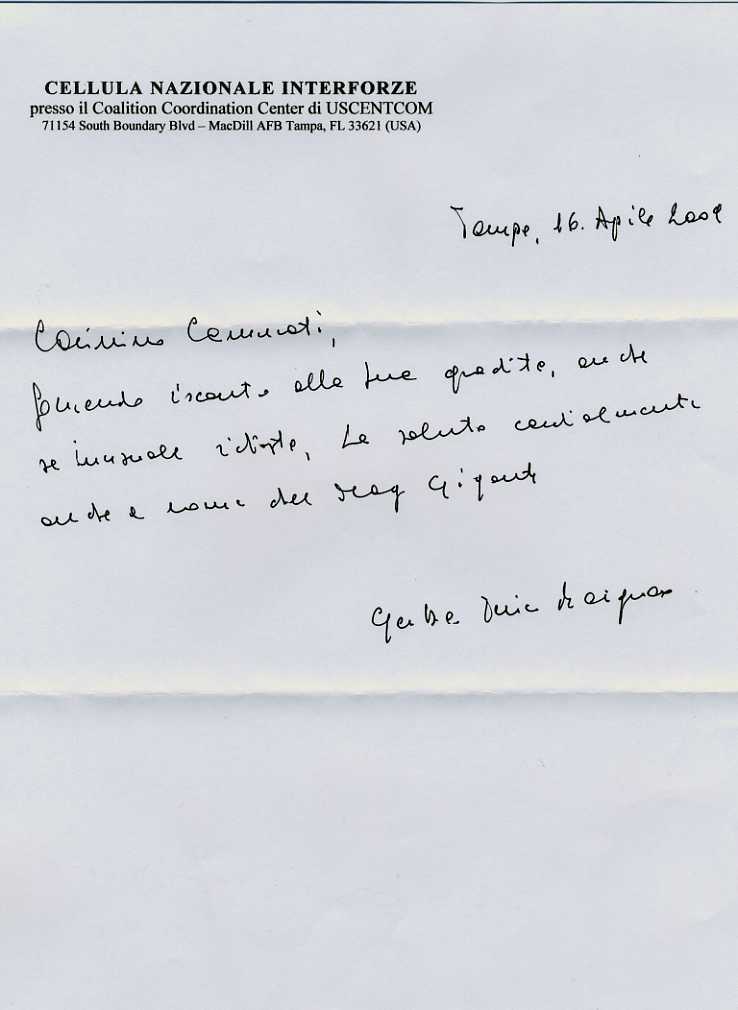 CELLULA NAZIONALE INTERFORZE
presso il Coalition Coordination Center di USCENTCOM
71154 South Boundary Blvd – MacDill AFB Tampa, FL 33621 (USA)
Tampa, 16. Aprile 2009
Carissimo Cammarati,
facendo riscontro alla Sua gradita, anche
se inusuale richiesta, La saluto cordialmente
anche a nome del Mag Gigante